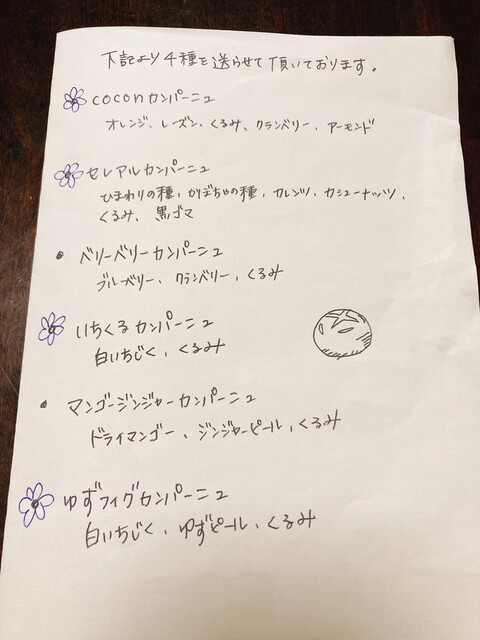 下記より4種を送らせて頂いております。
coconカンパーニュ
オレンジ、レーズン、くるみ、クランベリー、アーモンド
セレアルカンパーニュ
ひまわりの種、かぼちゃの種、カレンツ、カシューナッツ、
くるみ、黒ゴマ
・ベリーベリーカンパーニュ
ブルーベリー、クランベリー、くるみ
いちくるカンパーニュ
白いちじく、くるみ
・マンゴージンジャーカンパーニュ
ドライマンゴー、ジンジャーピール、くるみ
ゆずフィグカンパーニュ
白いちじく、ゆずピール、くるみ